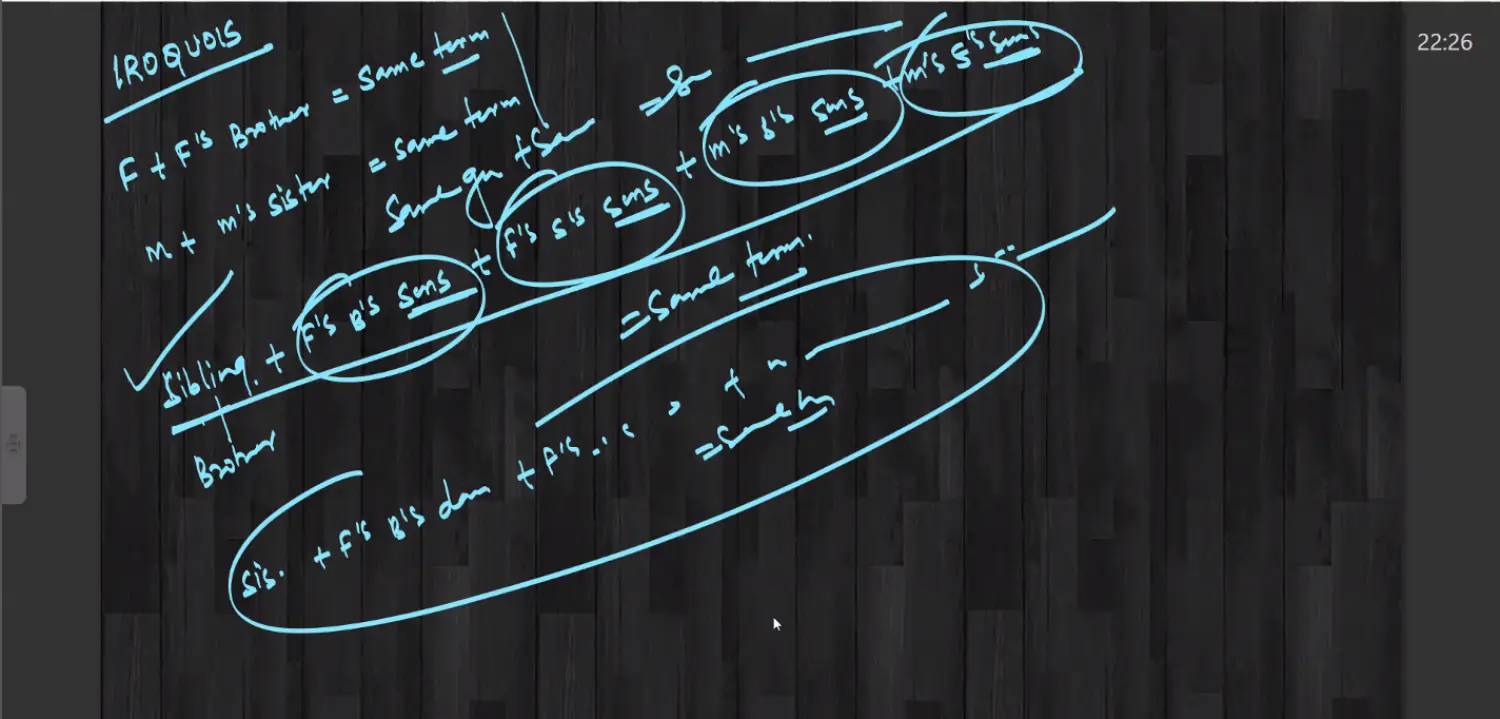 22:26
IROQUOIS
F + F's Brother = Same term
M + m's sister = Same term
Same gn +
Sibling. + F's B's sms + F's S's sms + m's B's sms + m's S's sms
= Same term.
Brother
Sis. + F's B's dau + F's
= Same